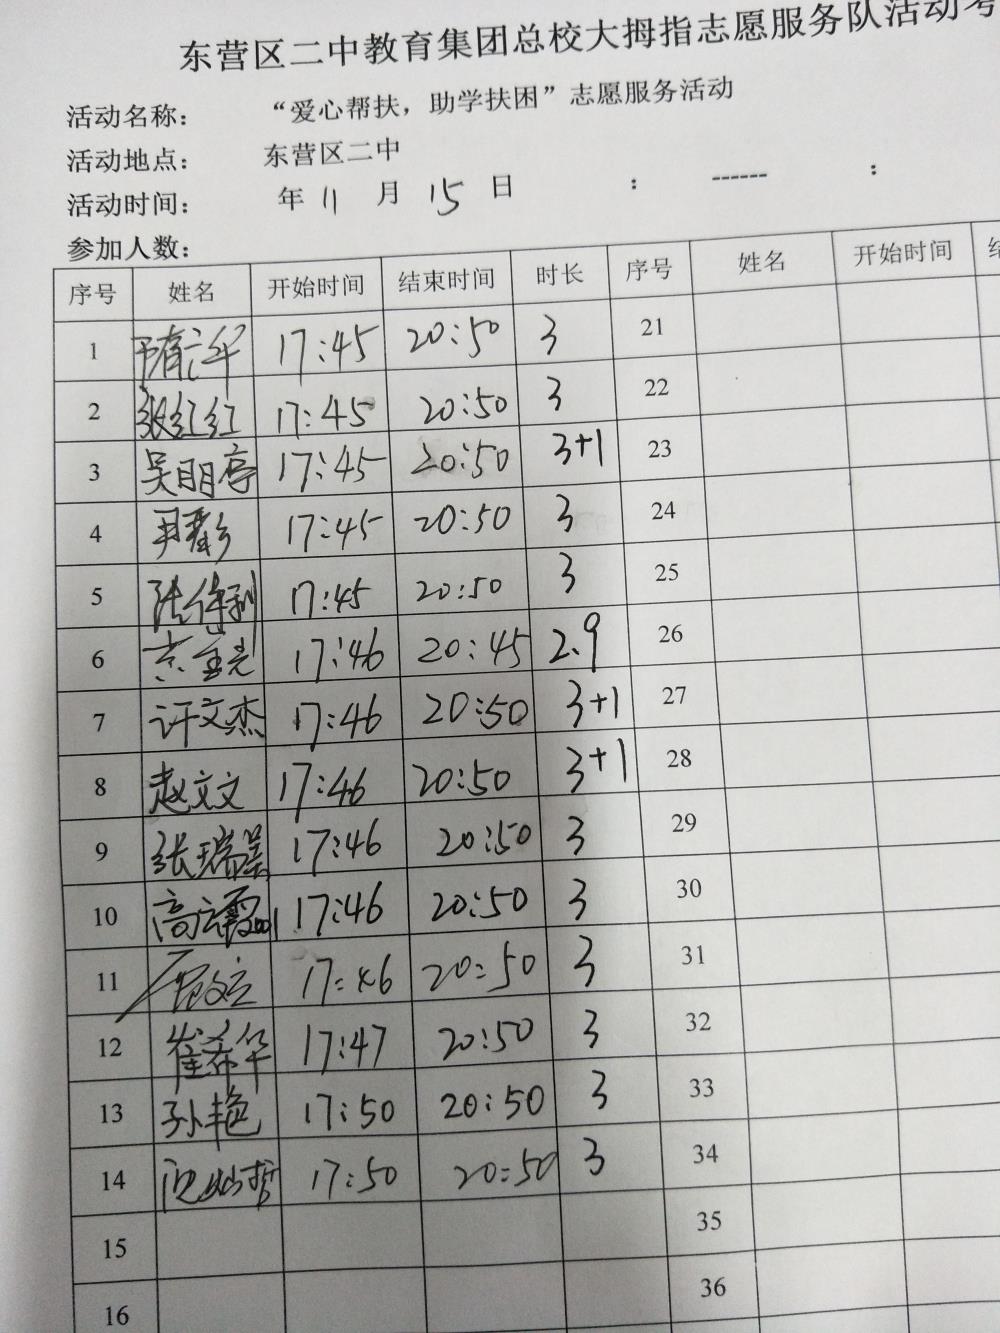 东营区二中教育集团总校大拇指志愿服务队活动考
活动名称： “爱心帮扶，助学扶困”志愿服务活动
活动地点： 东营区二中
活动时间： 年 11 月 15 日 ： ------ ：
参加人数：
序号 姓名 开始时间 结束时间 时长 序号 姓名 开始时间 结
1 17:45 20:50 3 21
2 张红红 17:45 20:50 3 22
3 吴明亭 17:45 20:50 3+1 23
4 17:45 20:50 3 24
5 17:45 20:50 3 25
6 17:46 20:45 2.9 26
7 许文杰 17:46 20:50 3+1 27
8 赵文文 17:46 20:50 3+1 28
9 张瑞 17:46 20:50 3 29
10 高 17:46 20:50 3 30
11 17:46 20:50 3 31
12 崔希华 17:47 20:50 3 32
13 孙艳 17:50 20:50 3 33
14 17:50 20:50 3 34
15 35
16 36